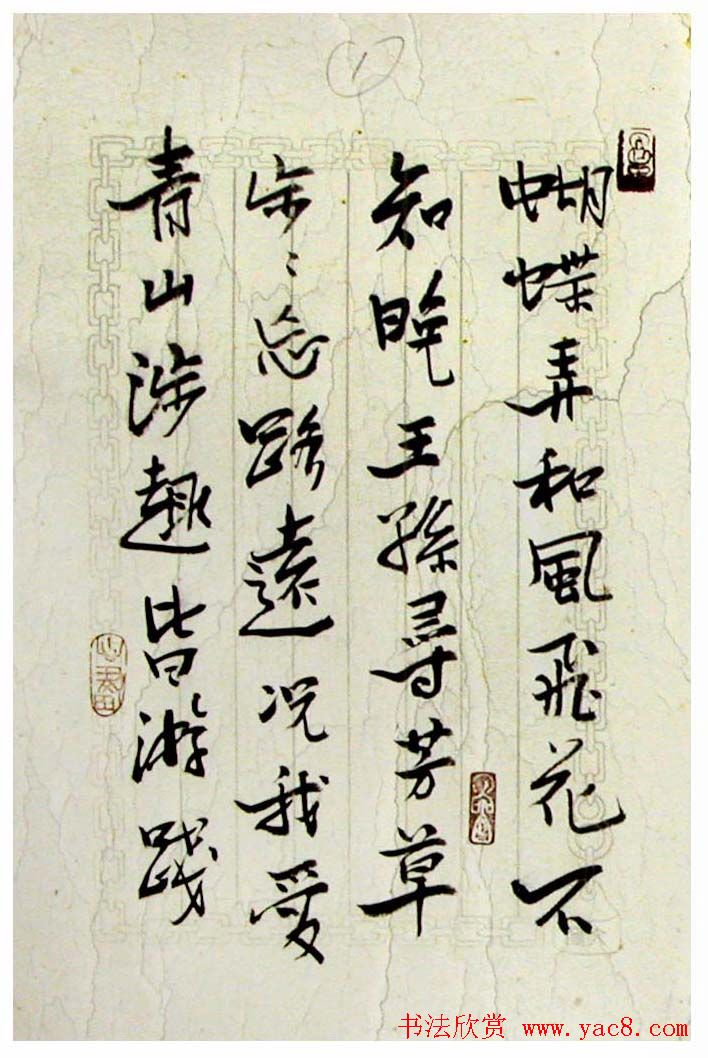 蝴蝶弄和風飛花不
知晚王孫尋芳草
步〻忘路遠況我愛
青山涉趣皆游踐
1
书法欣赏 www.yac8.com